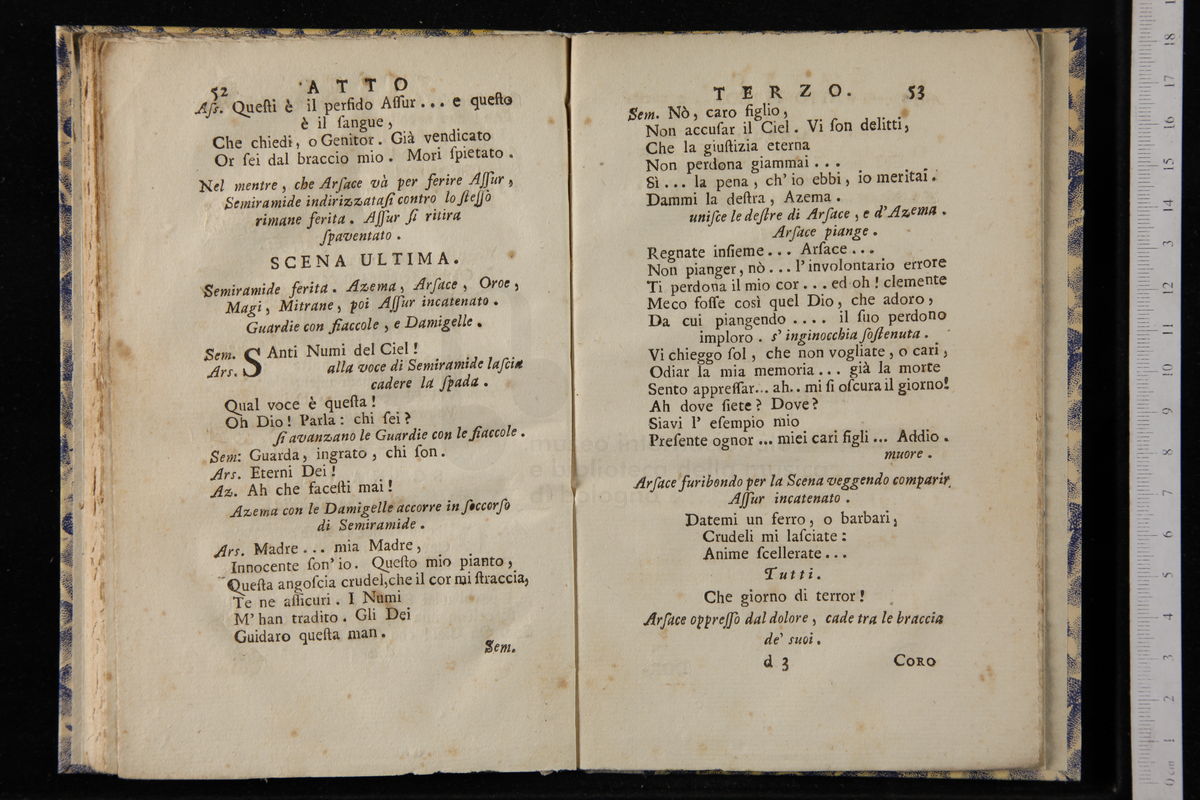 52 ATTO
Aſs. Queſti è il perfido Aſſur . . . e queſto
è il ſangue,
Che chiedi, o Genitor. Già vendicato
Or ſei dal braccio mio. Mori ſpietato.
Nel mentre, che Arſace và per ferire Aſſur,
Semiramide indirizzataſi contro lo ſteſſo
rimane ferita. Aſſur ſi ritira
ſpaventato.
SCENA ULTIMA.
Semiramide ferita. Azema, Arſace, Oroe,
Magi, Mitrane, poi Aſſur incatenato.
Guardie con fiaccole, e Damigelle.
Sem. SAnti Numi del Ciel!
Ars. alla voce di Semiramide laſcia
cadere la ſpada.
Qual voce è queſta!
Oh Dio! Parla: chi ſei?
ſi avanzano le Guardie con le fiaccole.
Sem: Guarda, ingrato, chi ſon.
Ars. Eterni Dei!
Az. Ah che faceſti mai!
Azema con le Damigelle accorre in ſoccorſo
di Semiramide.
Ars. Madre . . . mia Madre,
Innocente ſon' io. Queſto mio pianto,
Queſta angoſcia crudel,che il cor mi ſtraccia,
Te ne aſſicuri. I Numi
M' han tradito. Gli Dei
Guidaro queſta man.
Sem.
TERZO. 53
Sem. Nò, caro figlio,
Non accuſar il Ciel. Vi ſon delitti,
Che la giuſtizia eterna
Non perdona giammai . . .
Sì . . . la pena, ch' io ebbi, io meritai.
Dammi la deſtra, Azema.
uniſce le deſtre di Arſace, e d' Azema.
Arſace piange.
Regnate inſieme . . . Arſace . . .
Non pianger, nò . . . l' involontario errore
Ti perdona il mio cor . . . ed oh! clemente
Meco foſſe così quel Dio, che adoro,
Da cui piangendo . . . . il ſuo perdono
imploro. s' inginocchia ſoſtenuta.
Vi chieggo ſol, che non vogliate, o cari,
Odiar la mia memoria . . . già la morte
Sento appreſſar... ah.. mi ſi oſcura il giorno!
Ah dove ſiete? Dove?
Siavi l' eſempio mio
Preſente ognor ... miei cari figli ... Addio.
muore.
Arſace furibondo per la Scena veggendo comparir
Aſſur incatenato.
Datemi un ferro, o barbari,
Crudeli mi laſciate:
Anime ſcellerate . . .
Tutti.
Che giorno di terror!
Arſace oppreſſo dal dolore, cade tra le braccia
de' suoi.
d 3 CORO